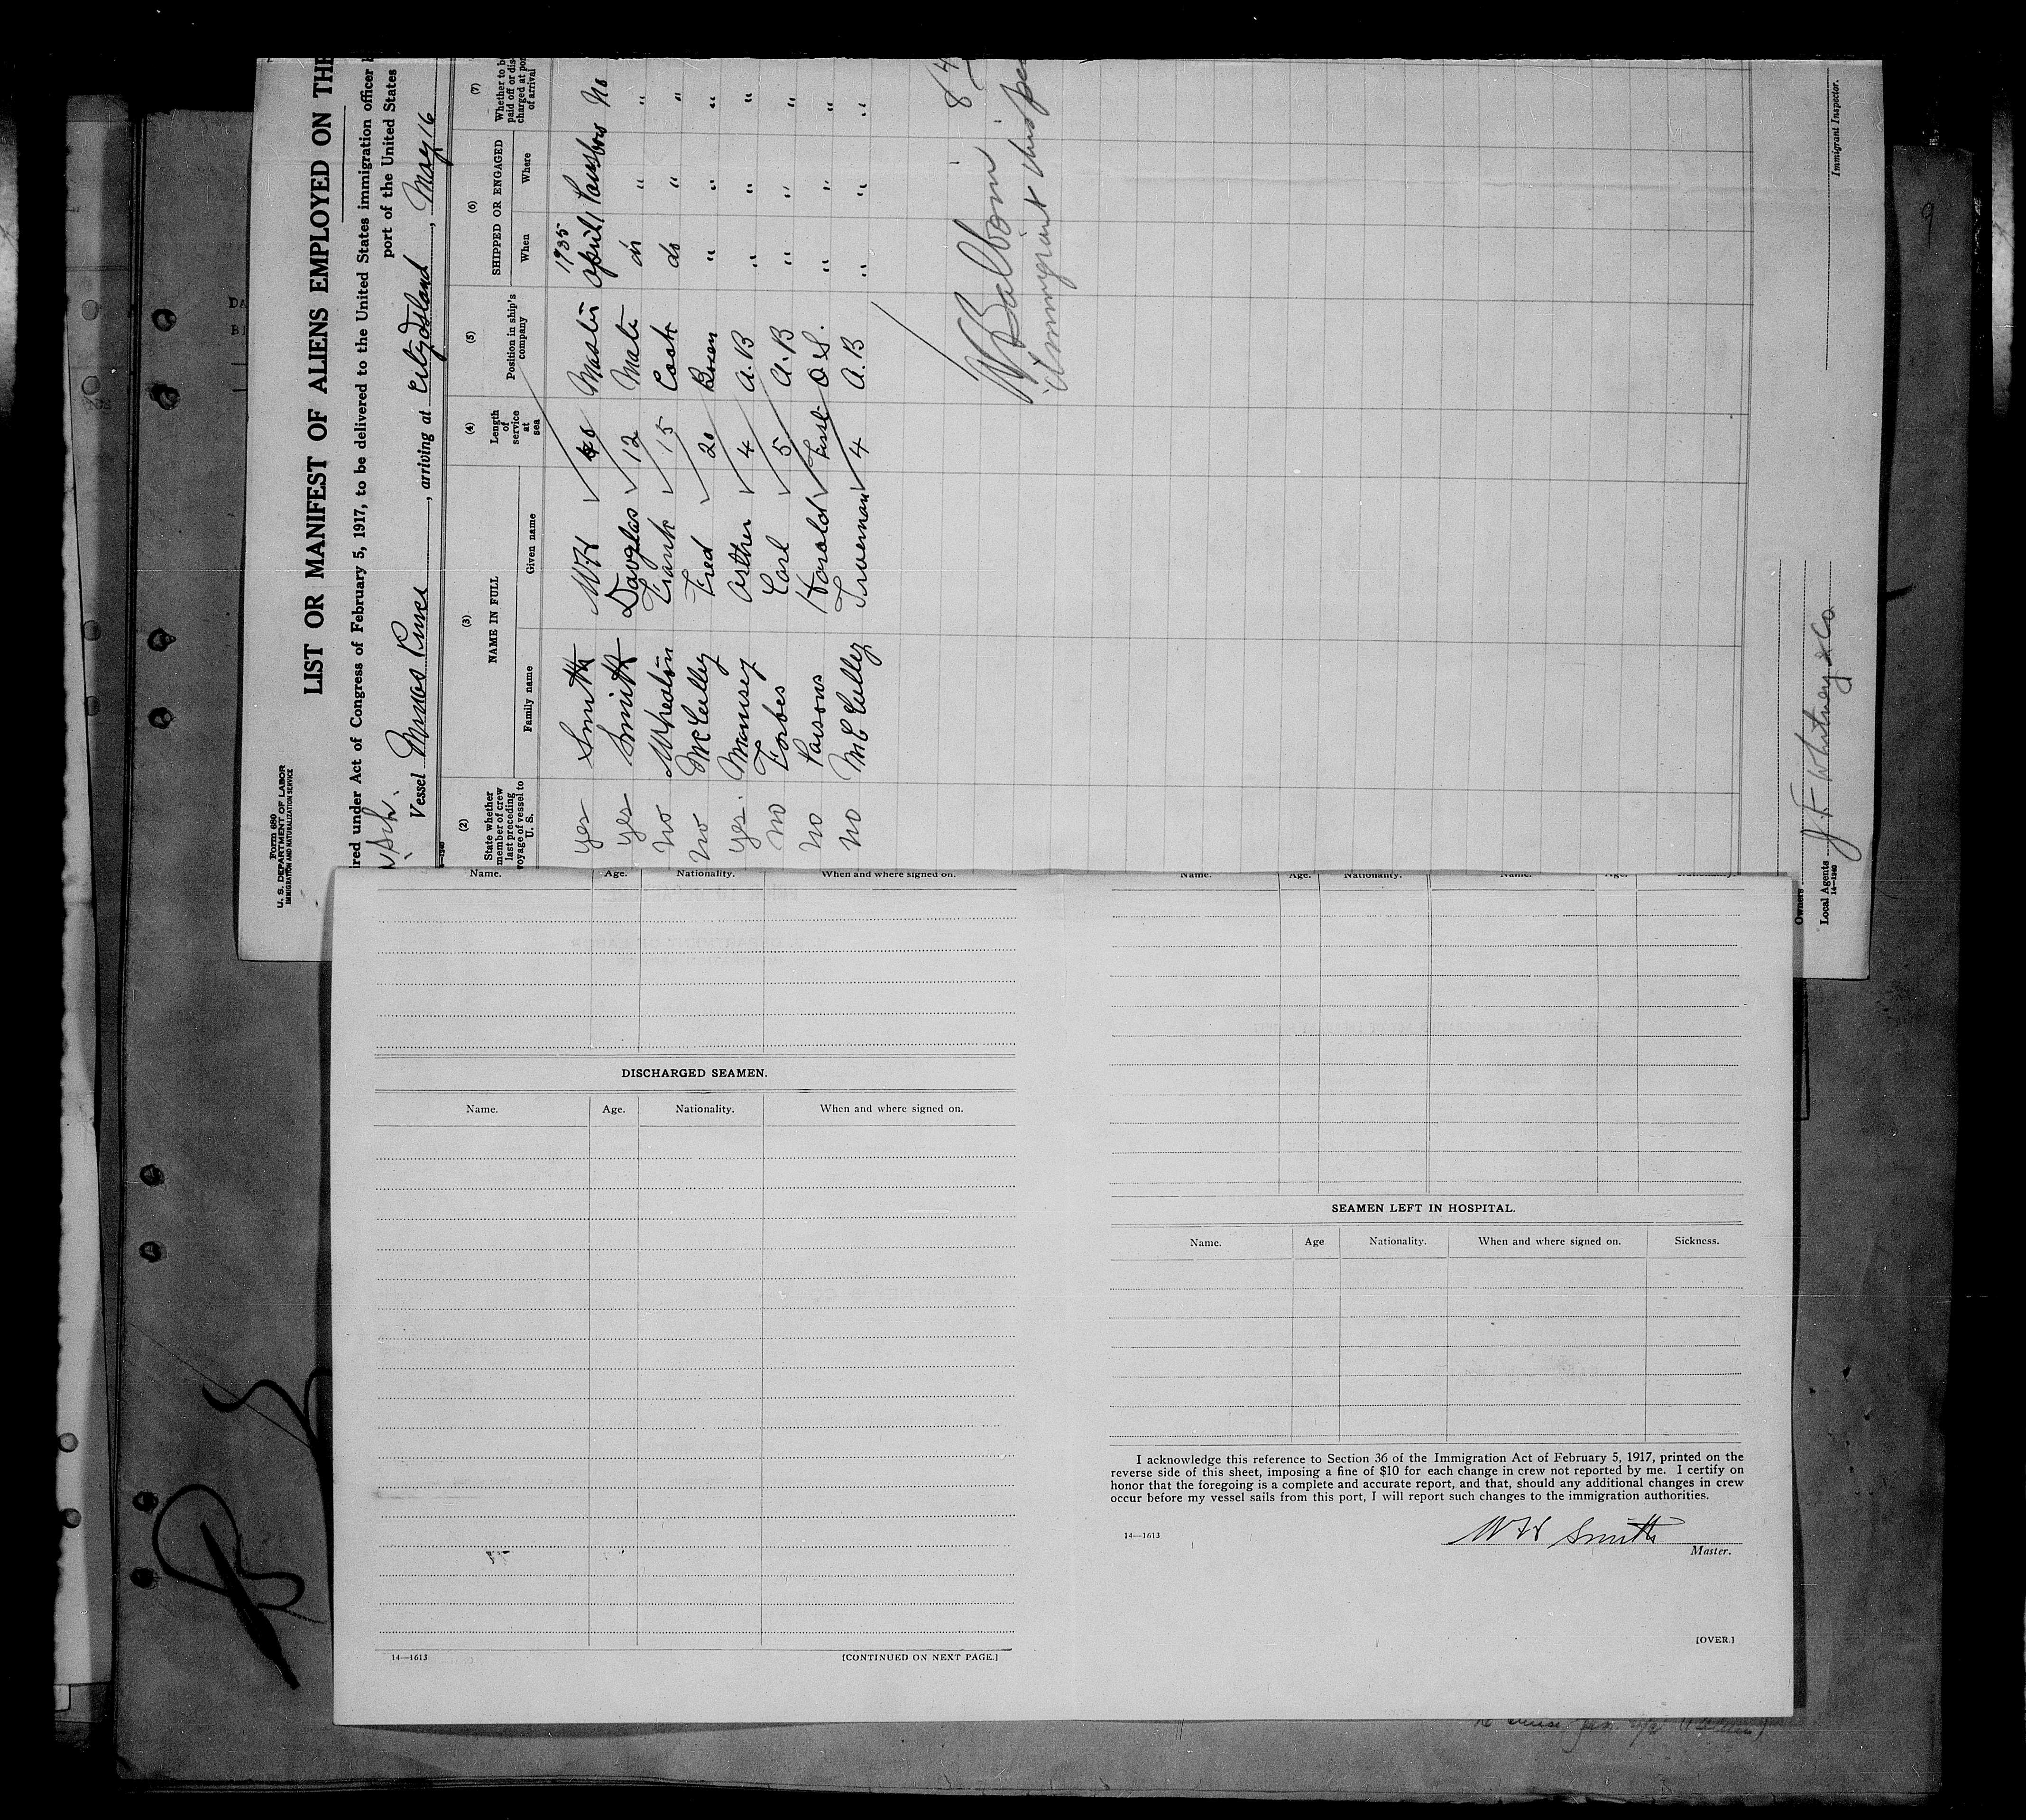 Form 680
U. S. DEPARTMENT OF LABOR
IMMIGRATION AND NATURALIZATION SERVICE
LIST OR MANIFEST OF ALIENS EMPLOYED ON THE
red under Act of Congress of February 5, 1917, to be delivered to the United States immigration officer
port of the United States
Sch.
Vessel Minas Prince, arriving at City Island, May 16
(2) (3) (4) (5) (6) (7)
State whether member of crew last preceding voyage of vessel to U. S.
NAME IN FULL
Family name Given name
Length of service at sea
Position in ship's company
SHIPPED OR ENGAGED
When Where
Whether to be paid off or discharged at port of arrival
1935
yes Smith WH Master April Parrsboro No
yes Smith Douglas 12 Mate do " "
no Frank 15 Cook do " "
no McCulley Fred 20 Bosen " " "
yes. Arthur 4 A.B " " "
no Forbes Carl 5 A.B " " "
no Parsons Harold First O.S. " " "
no McCulley Trueman 4 A.B " " "
8
Immigrant Inspec
Immigrant Inspector.
Owners
Local Agents J F Whitney & Co
14—1240
9
Name. Age. Nationality. When and where signed on.
DISCHARGED SEAMEN.
Name. Age. Nationality. When and where signed on.
14—1613 [CONTINUED ON NEXT PAGE.]
Name. Age. Nationality. Name. Age. Nationality.
SEAMEN LEFT IN HOSPITAL.
Name. Age Nationality. When and where signed on. Sickness.
I acknowledge this reference to Section 36 of the Immigration Act of February 5, 1917, printed on the
reverse side of this sheet, imposing a fine of $10 for each change in crew not reported by me. I certify on
honor that the foregoing is a complete and accurate report, and that, should any additional changes in crew
occur before my vessel sails from this port, I will report such changes to the immigration authorities.
14—1613
WH Smith
Master.
[OVER.]